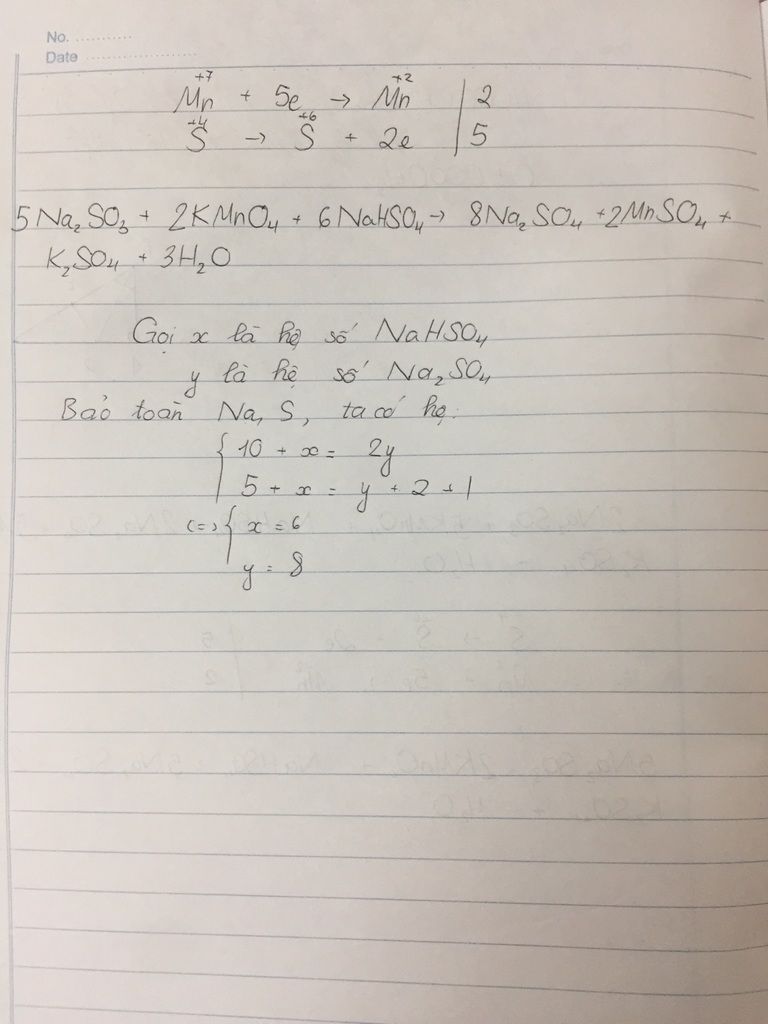 No. ............
Date ........................
+7 +2
Mn + 5e → Mn | 2
+4 +6
S → S + 2e | 5
5Na₂SO₃ + 2KMnO₄ + 6NaHSO₄ → 8Na₂SO₄ + 2MnSO₄ +
K₂SO₄ + 3H₂O
Gọi x là hệ số NaHSO₄
y là hệ số Na₂SO₄
Bảo toàn Na, S, ta có hệ:
{ 10 + x = 2y
5 + x = y + 2 + 1
(=) { x = 6
y = 8